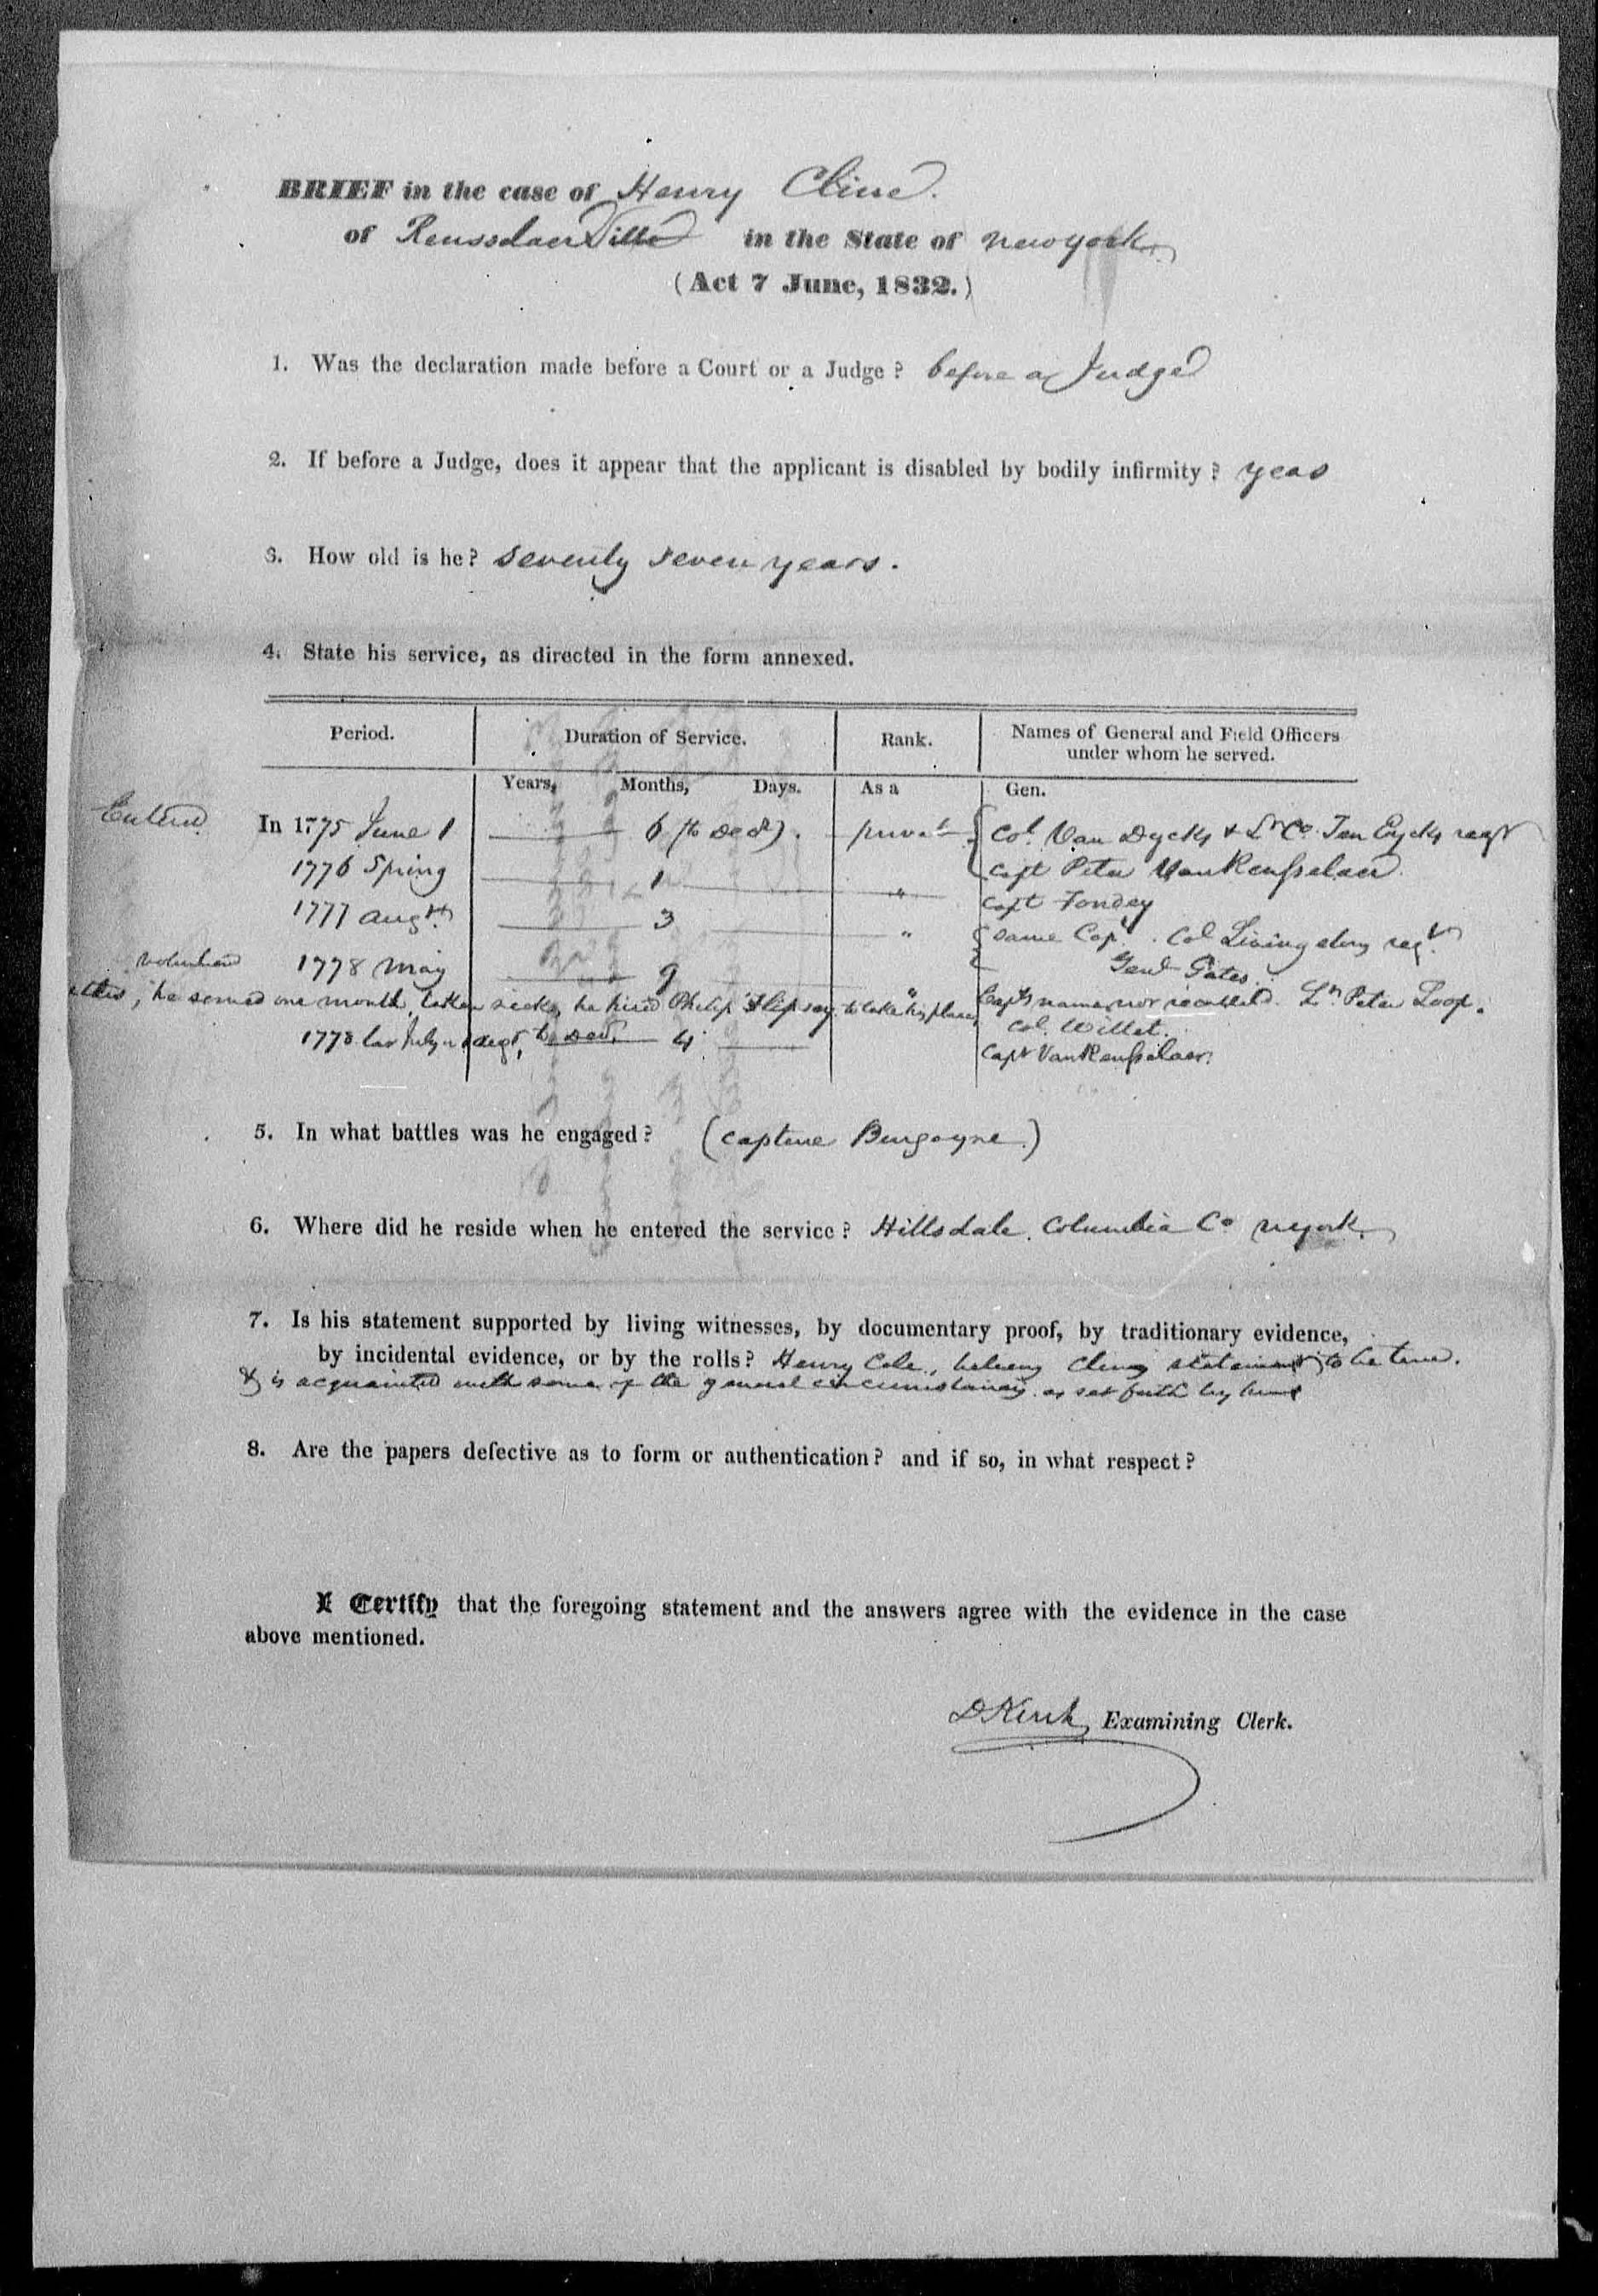 BRIEF in the case of Henry Cline.
of RensselaerVille in the State of New york
(Act 7 June, 1832.)
1. Was the declaration made before a Court or a Judge? before a Judge
2. If before a Judge, does it appear that the applicant is disabled by bodily infirmity? yeas
3. How old is he? Seventy seven years.
4. State his service, as directed in the form annexed.
Period. Duration of Service. Rank. Names of General and Field Officers
under whom he served.
Years, Months, Days. As a Gen.
Entered In 1775 June 1 6 (to Decr). privat Col. Van Dycks & Lt Co. Ten Eycks regt
1776 Spring 1 " Capt Peter VanRensselaer
1777 augt 3 " Capt Fondey
same Capt. Col Livingstons regt
Genl Gates.
Volunteered 1778 May 9 "
this, he served one month, taken sick, he hired Philip to take his place, Capts name not recollected. Lt. Peter Loop.
Col. Willet.
1778 July or Augt, to Decr 4 Capt VanRensselaer.
5. In what battles was he engaged? (capture Burgoyne.)
6. Where did he reside when he entered the service? Hillsdale. Columbia Co nyork.
7. Is his statement supported by living witnesses, by documentary proof, by traditionary evidence,
by incidental evidence, or by the rolls? Henry Cole, believes Clines statement to be true.
& is acquainted with some of the general circumstances as set forth by him
8. Are the papers defective as to form or authentication? and if so, in what respect?
I Certify that the foregoing statement and the answers agree with the evidence in the case
above mentioned.
Examining Clerk.